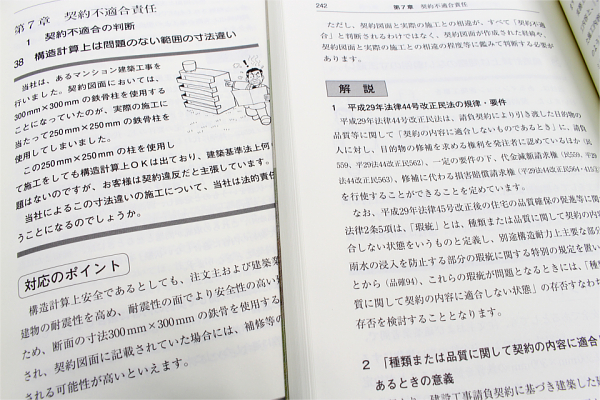 第7章 契約不適合責任
1 契約不適合の判断
38 構造計算上は問題のない範囲の寸法違い
当社は、あるマンション建築工事を
行いました。契約図面においては、
300mm×300mmの鉄骨柱を使用する
ことになっていたのが、実際の施工に
当たって250mm×250mmの鉄骨柱を
使用してしまいました。
この250mm×250mmの柱を使用し
て施工をしても構造計算上OKは出ており、建築基準法上何
題はないのですが、お客様は契約違反だと主張しています。
当社によるこの寸法違いの施工について、当社は法的責任
うことになるのでしょうか。
対応のポイント
構造計算上安全であるとしても、注文主および建築業
建物の耐震性を高め、耐震性の面でより安全性の高い
ため、断面の寸法300mm×300mmの鉄骨を使用する
され、契約図面に記載されていた場合には、補修等の
される可能性が高いといえます。
242 第7章 契約不適合責任
ただし、契約図面と実際の施工との相違が、すべて「契約不適
合」と判断されるわけではなく、契約図面が作成された経緯や、
契約図面と実際の施工との相違の程度等に鑑みて判断する必要が
あります。
解説
1 平成29年法律44号改正民法の規律・要件
平成29年法律44号改正民法は、請負契約により引き渡した目的物の
品質等に関して「契約の内容に適合しないものであるとき」に、請負
人に対し、目的物の修補を求める権利を発注者に認めているほか(民
559、平29法44改正民562)、一定の要件の下、代金減額請求権(民559、平
29法44改正民563)、修補に代わる損害賠償請求権(平29法44改正民564・415
を行使することができることを定めています。
なお、平成29年法律45号改正後の住宅の品質確保の促進等に関
法律2条5項は、「瑕疵」とは、種類または品質に関して契約の内容
合しない状態をいうものと定義し、別途構造耐力上主要な部分
雨水の浸入を防止する部分の瑕疵に関する特別の規定を置い
とから(品確94)、これらの瑕疵が問題となるときには、「種類
質に関して契約の内容に適合しない状態」の存否すなわち
存否を検討することとなります。
2 「種類または品質に関して契約の内容に適合
あるときの意義
建設工事請負契約に基づき建築した建